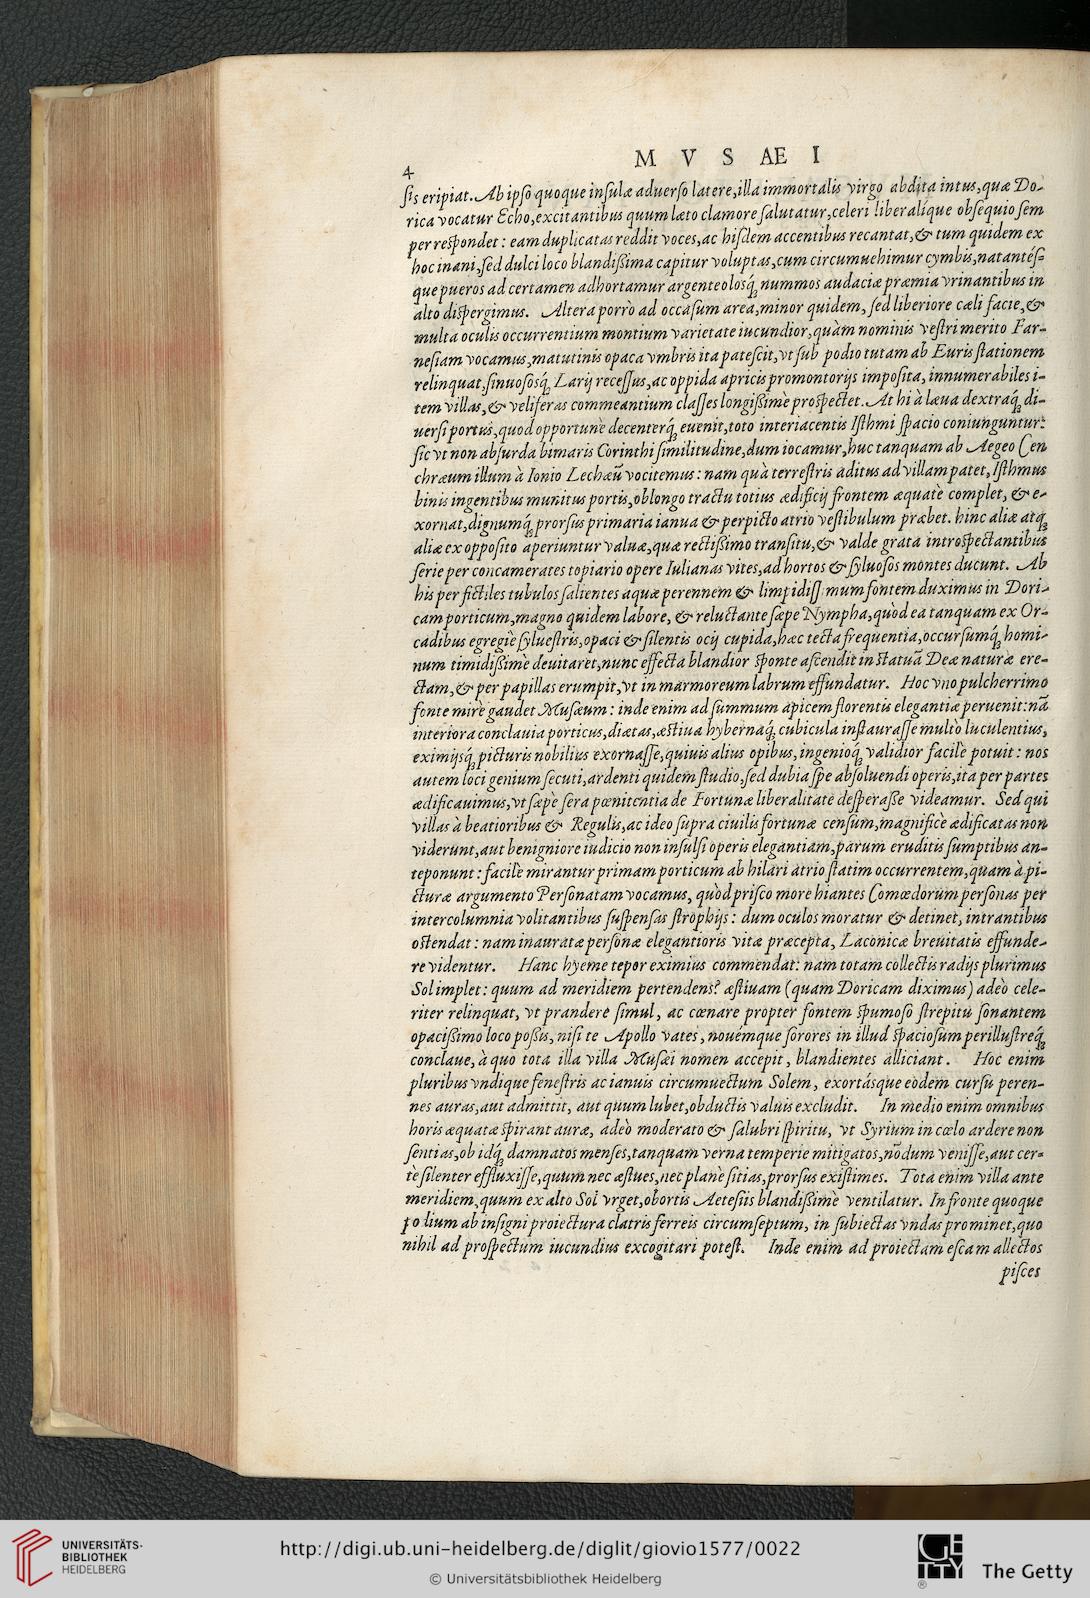 4
M V S AE I
ſis eripiat. Ab ipſo quoque inſulæ aduerſo latere, illa immortalis virgo abdita intus, quæ Do-
rica vocatur Echo, excitantibus quum læto clamore ſalutatur, celeri liberalíque obſequio ſem
per reſpondet: eam duplicatas reddit voces, ac hiſdem accentibus recantat, & tum quidem ex
hoc inani, ſed dulci loco blandißima capitur voluptas, cum circumuehimur cymbis, natantéſ-
que pueros ad certamen adhortamur argenteolosq́; nummos audaciæ præmia vrinantibus in
alto diſpergimus. Altera porrò ad occaſum area, minor quidem, ſed liberiore cæli facie, &
multa oculis occurrentium montium varietate iucundior, quàm nominis veſtri merito Far-
neſiam vocamus, matutinis opaca vmbris ita pateſcit, vt ſub podio tutam ab Euris ſtationem
relinquat, ſinuoſosq́; Larij receſſus, ac oppida apricis promontorijs impoſita, innumerabiles i-
tem villas, & veliferas commeantium claſſes longißimè proſpectet. At hi à læua dextraq́; di-
uerſi portus, quod opportunè decenterq́; euenit, toto interiacentis Iſthmi ſpacio coniunguntur:
ſic vt non abſurda bimaris Corinthi ſimilitudine, dum iocamur, huc tanquam ab Aegeo Cen
chræum illum à Ionio Lechæũ vocitemus: nam quà terreſtris aditus ad villam patet, Iſthmus
binis ingentibus munitus portis, oblongo tractu totius ædificij frontem æquatè complet, & e-
xornat, dignumq́; prorſus primaria ianua & perpicto atrio veſtibulum præbet. hinc aliæ atq́;
aliæ ex oppoſito aperiuntur valuæ, quæ rectißimo tranſitu, & valde grata introſpectantibus
ſerie per concamerates topiario opere Iulianas vites, ad hortos & ſyluoſos montes ducunt. Ab
his per fictiles tubulos ſalientes aquæ perennem & limpidiſſimum fontem duximus in Dori-
cam porticum, magno quidem labore, & reluctante ſæpe Nympha, quòd ea tanquam ex Or-
cadibus egregiè ſylueſtris, opaci & ſilentis ocij cupida, hæc tecta frequentia, occurſumq́; homi-
num timidißimè deuitaret, nunc effecta blandior ſponte aſcendit in ſtatuã Deæ naturæ ere-
ctam, & per papillas erumpit, vt in marmoreum labrum effundatur. Hoc vno pulcherrimo
fonte mirè gaudet Muſæum: inde enim ad ſummum apicem florentis elegantiæ peruenit: nã
interiora conclauia porticus, diætas, æſtiua hybernaq́; cubicula inſtauraſſe multò luculentius,
eximijsq́; picturis nobilius exornaſſe, quiuis alius opibus, ingenioq́; validior facilè potuit: nos
autem loci genium ſecuti, ardenti quidem ſtudio, ſed dubia ſpe abſoluendi operis, ita per partes
ædificauimus, vt ſæpè ſera pœnitentia de Fortunæ liberalitate deſperaſſe videamur. Sed qui
villas à beatioribus & Regulis, ac ideo ſupra ciuilis fortunæ cenſum, magnificè ædificatas non
viderunt, aut benigniore iudicio non inſulſi operis elegantiam, parum eruditis ſumptibus an-
teponunt: facilè mirantur primam porticum ab hilari atrio ſtatim occurrentem, quam à pi-
cturæ argumento Perſonatam vocamus, quòd priſco more hiantes Comœdorum perſonas per
intercolumnia volitantibus ſuſpenſas ſtrophijs: dum oculos moratur & detinet, intrantibus
oſtendat: nam inauratæ perſonæ elegantioris vitæ præcepta, Laconicæ breuitatis effunde-
re videntur. Hanc hyeme tepor eximius commendat: nam totam collectis radijs plurimus
Sol implet: quum ad meridiem pertendens? æſtiuam (quam Doricam diximus) adeò cele-
riter relinquat, vt prandere ſimul, ac cœnare propter fontem ſpumoſo ſtrepitu ſonantem
opacißimo loco poßis, niſi te Apollo vates, nouémque ſorores in illud ſpacioſum perilluſtreq́;
conclaue, à quo tota illa villa Muſæi nomen accepit, blandientes alliciant. Hoc enim
pluribus vndique feneſtris ac ianuis circumuectum Solem, exortásque eòdem curſu peren-
nes auras, aut admittit, aut quum lubet, obductis valuis excludit. In medio enim omnibus
horis æquatæ ſpirant auræ, adeò moderato & ſalubri ſpiritu, vt Syrium in cœlo ardere non
ſentias, ob idq́; damnatos menſes, tanquam verna temperie mitigatos, nõdum veniſſe, aut cer-
tè ſilenter effluxiſſe, quum nec æſtues, nec planè ſitias, prorſus exiſtimes. Tota enim villa ante
meridiem, quum ex alto Sol vrget, obortis Aeteſiis blandißimè ventilatur. In fronte quoque
podium ab inſigni proiectura clatris ferreis circumſeptum, in ſubiectas vndas prominet, quo
nihil ad proſpectum iucundius excogitari poteſt. Inde enim ad proiectam eſcam allectos
piſces
UNIVERSITÄTS-
BIBLIOTHEK
HEIDELBERG
http://digi.ub.uni-heidelberg.de/diglit/giovio1577/0022
© Universitätsbibliothek Heidelberg
GETTY
®
The Getty